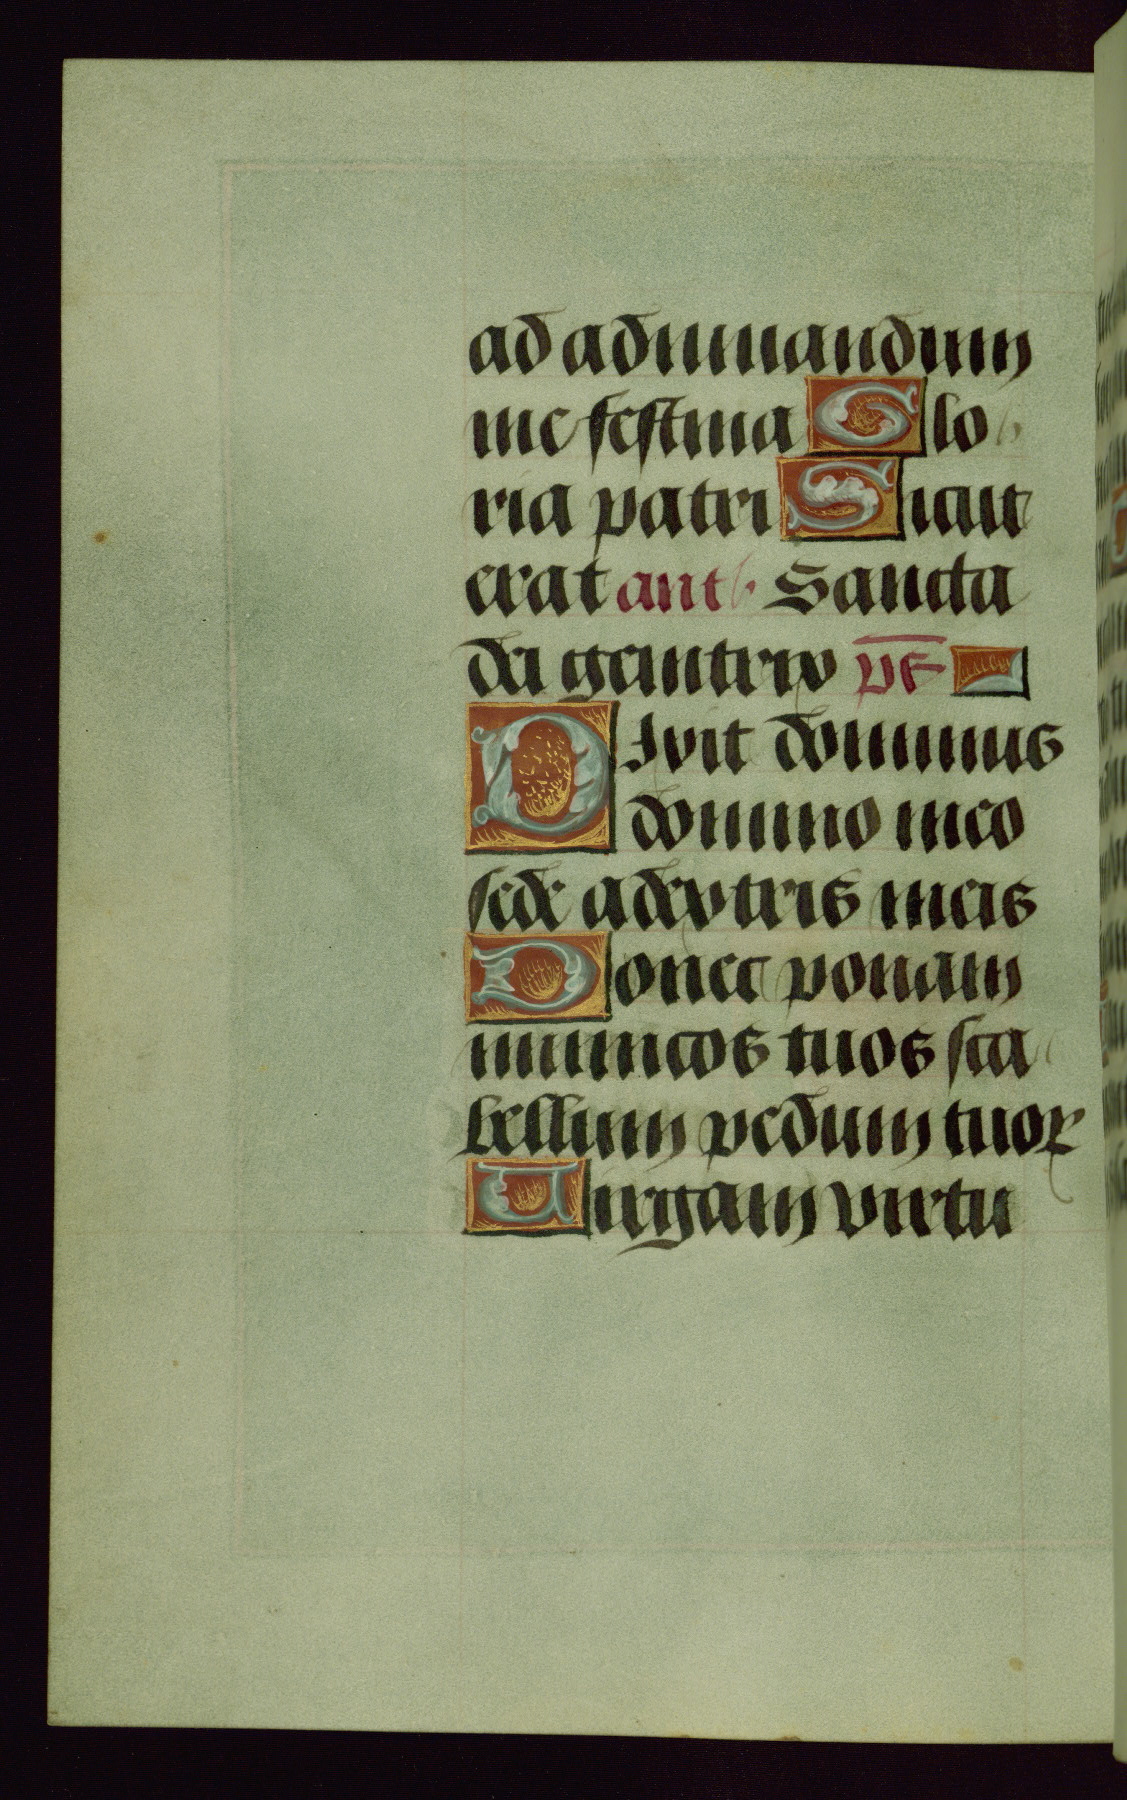 ad adiuuandum
me festina Glo
ria patri Sicut
erat ant Sancta
dei genitrix ps
Dixit dominus
domino meo
sede a dextris meis
Donec ponam
inimicos tuos sca
bellum pedum tuoꝝ
Uirgam virtu